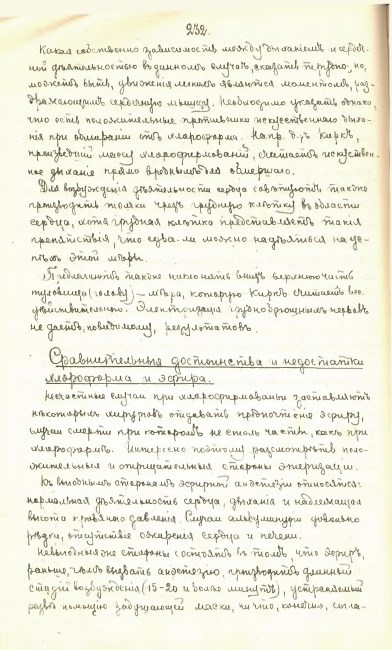 232.
Какая собственно зависимость между дыханiемъ и сердеч-
ной дѣятельностью въ данномъ случаѣ, сказать трудно; но,
можетъ быть, движенiя легкихъ являются моментомъ, раз-
дражающимъ сердечную мышцу. Необходимо указать однако,
что есть положительные противники искусственнаго дыха-
нiя при обмиранiи отъ хлороформа. Напр. д-ръ Киркъ,
произведшiй массу хлороформированiй, считаетъ искусствен-
ное дыханiе прямо вреднымъ для обмершаго.
Для возбужденiя дѣятельности сердца совѣтуютъ также
производить толчки чрезъ грудную клѣтку въ области
сердца, хотя грудная клѣтка представляетъ такiя
препятствiя, что едва-ли можно надѣяться на ус-
пѣхъ этой мѣры.
Предлагаютъ также наклонять внизъ верхнюю часть
туловища (голову) — мѣра, которую Киркъ считаетъ все
дѣйствительною. Электризацiя грудобрюшныхъ нервовъ
не даетъ, повидимому, результатовъ.
Сравнительныя достоинства и недостатки
хлороформа и эфира.
Несчастные случаи при хлороформированьи заставляютъ
нѣкоторыхъ хирурговъ отдавать предпочтенiе эфиру,
случаи смерти при которомъ не столь часты, какъ при
хлороформѣ. Интересно поэтому разсмотрѣть поло-
жительныя и отрицательныя стороны этеризацiи.
Къ выгоднымъ сторонамъ эфирной анестезiи относятся:
нормальная дѣятельность сердца, дыханiя и надлежащая
высота кровяного давленiя. Случаи альбуминурiи довольно
рѣдки, отсутствiе ожиренiя сердца и печени.
Невыгодныя же стороны состоятъ въ томъ, что эфиръ,
раньше, чѣмъ вызвать анестезiю, производитъ длинный
стадiй возбужденiя (15-20 и болѣе минутъ), устраняемый
развѣ помощью задушающей маски, на что, конечно, согла-